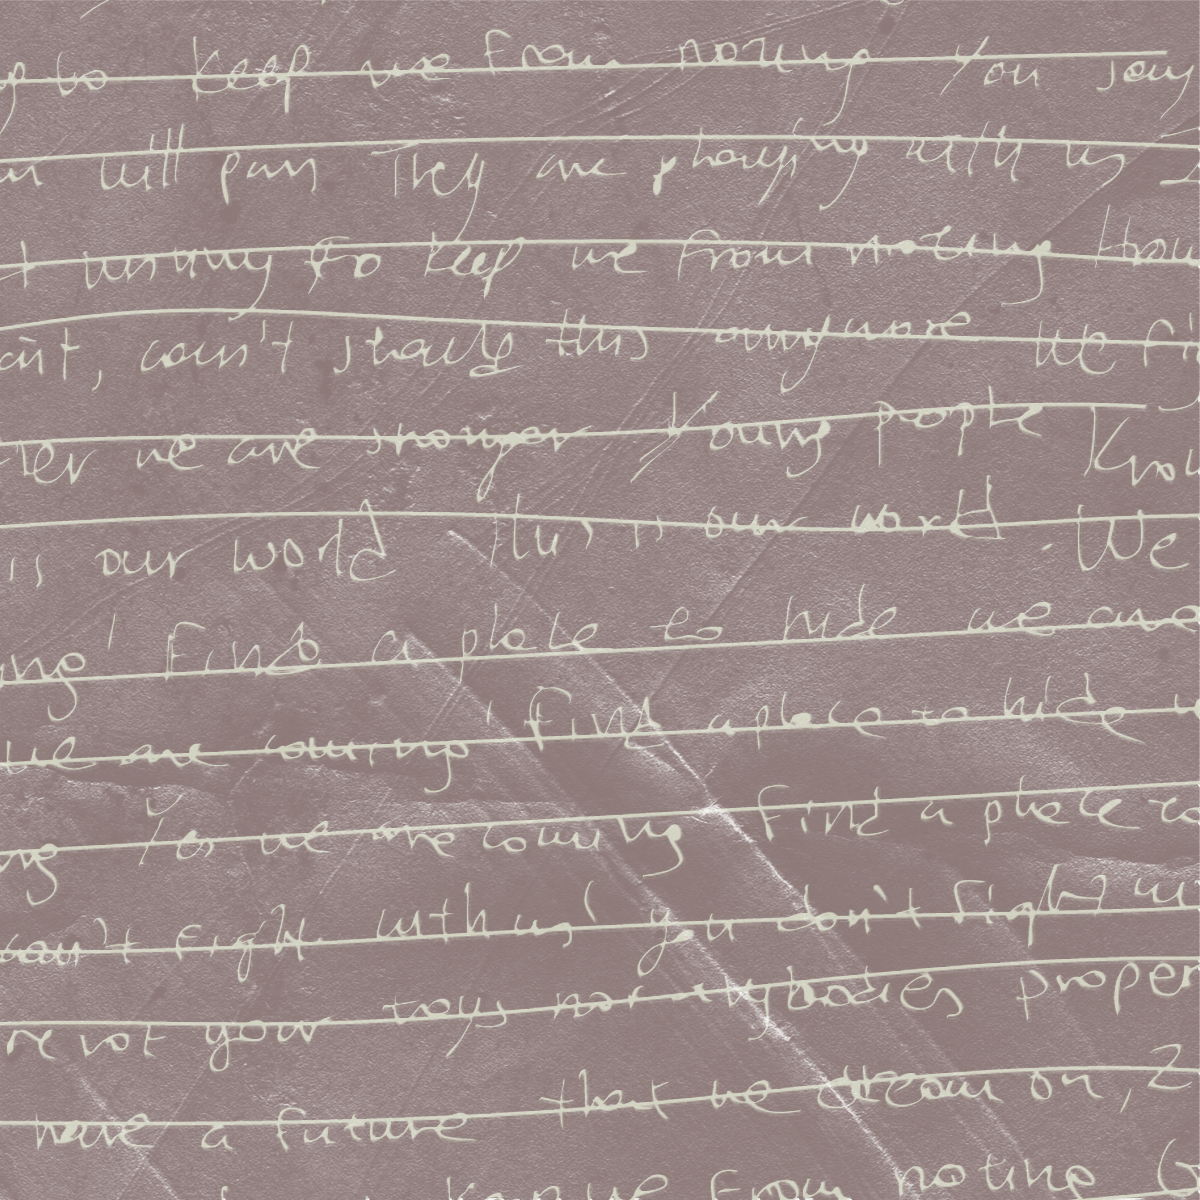 to keep me from noting You say
will pain They are playing with us
to keep me from noting How
can't share this anymore We
we are stronger Young people Know
is our world this is our world We
find a place to hide we are
we are coming find a place to hide
Yes we are coming find a place to
can't fight with us you don't fight
not your toys nor anybodies proper
have a future that we dream on,
me from noting